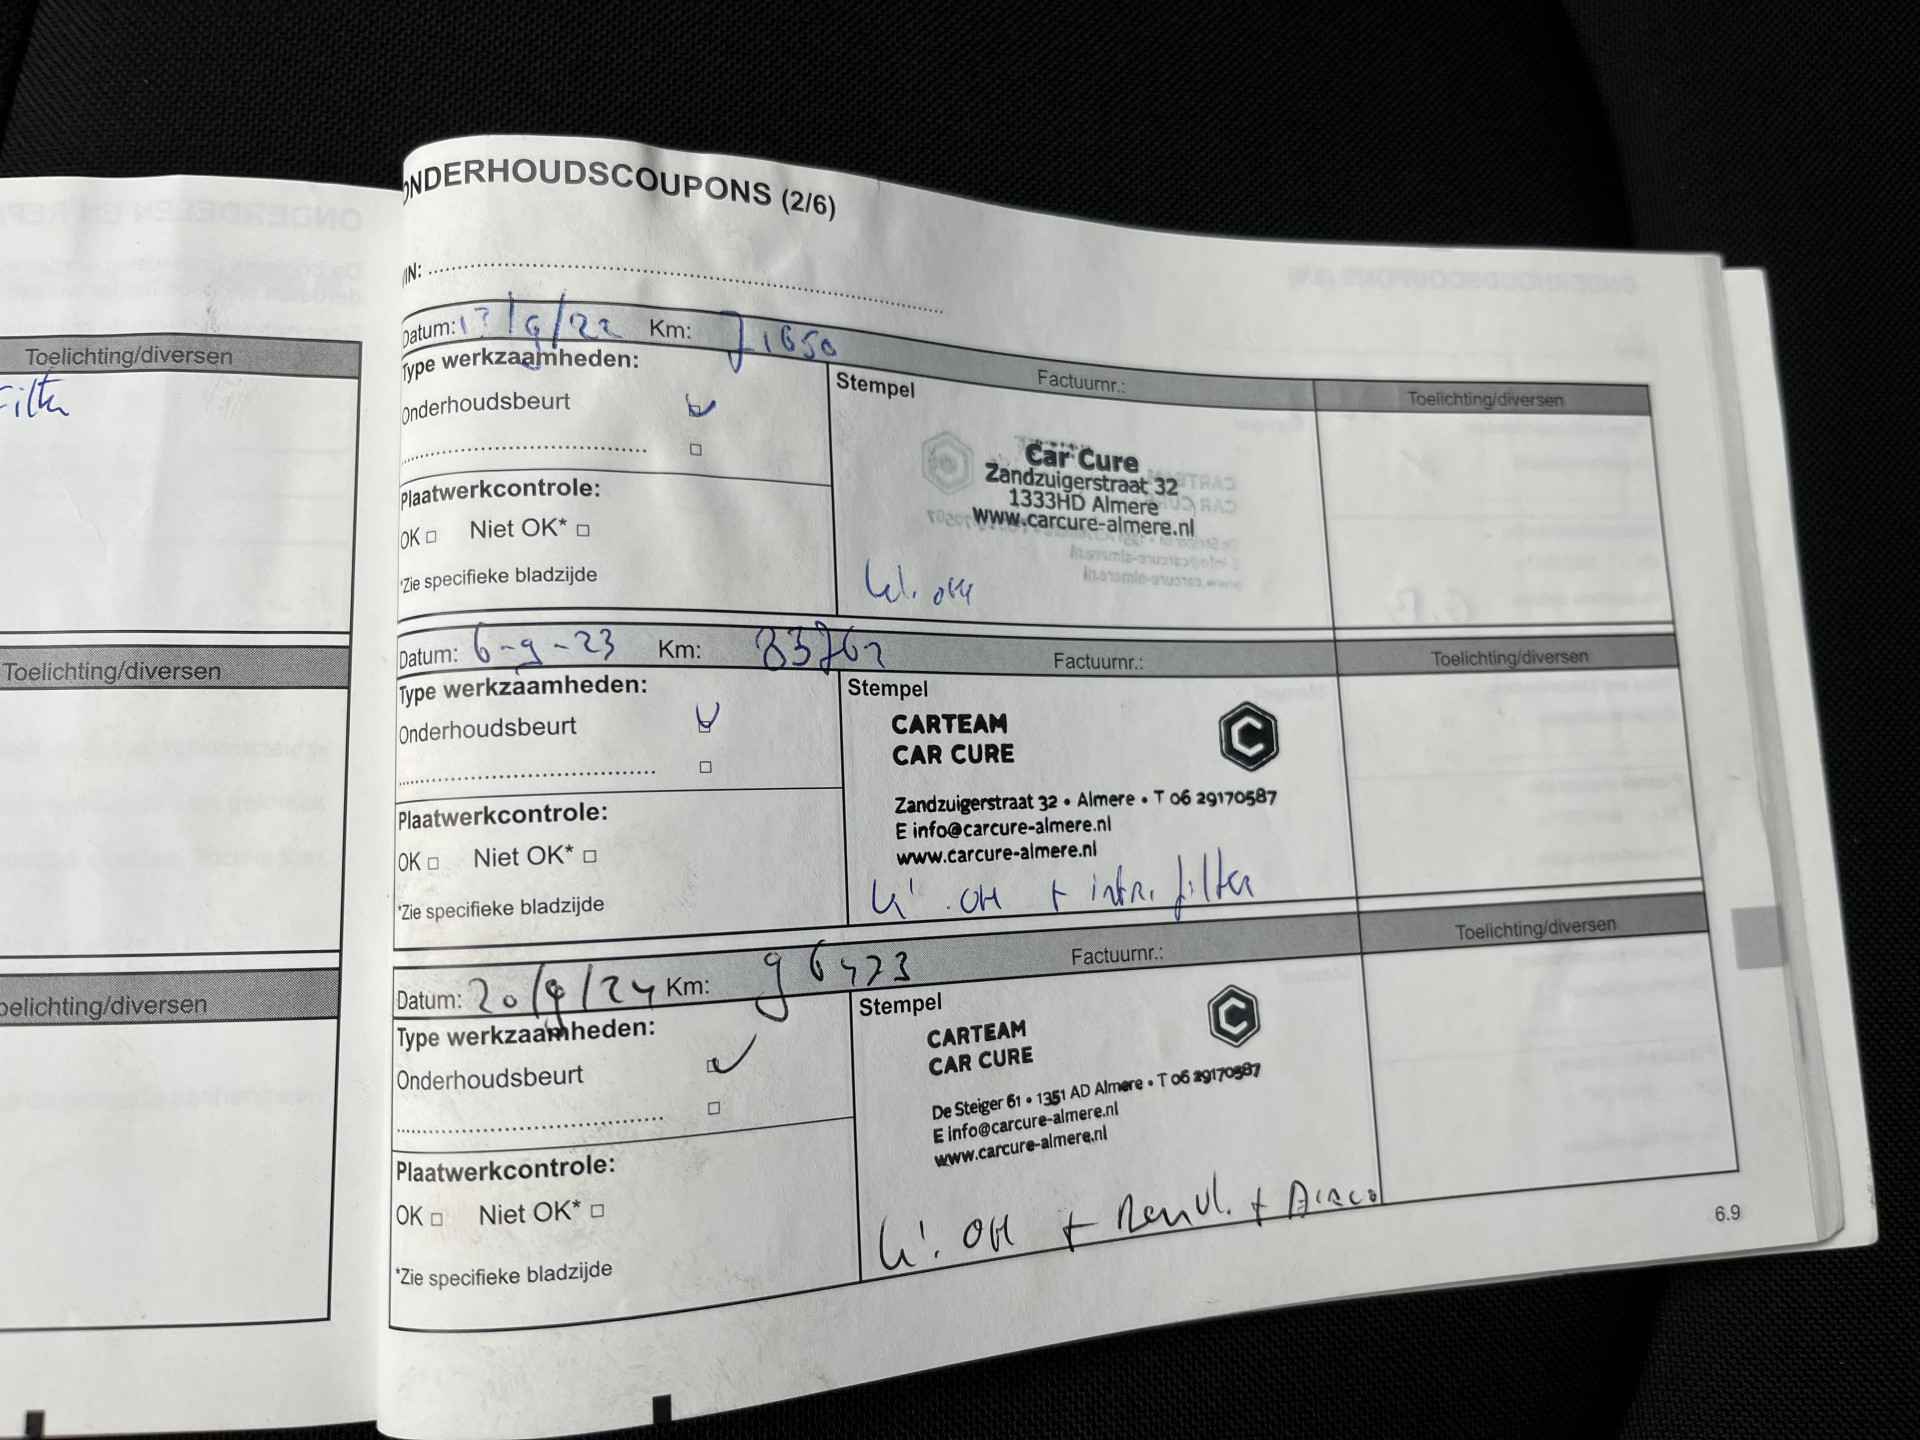 Toelichting/diversen
Filter
Toelichting/diversen
oelichting/diversen
ONDERHOUDSCOUPONS (2/6)
VIN:
Datum: 13/9/22 Km: 71650
Factuurnr.:
Toelichting/diversen
Type werkzaamheden:
Stempel
Onderhoudsbeurt
Car Cure
Zandzuigerstraat 32
1333HD Almere
www.carcure-almere.nl
Plaatwerkcontrole:
OK □ Niet OK* □
*Zie specifieke bladzijde
kl. OH
Datum: 6-9-23 Km: 83762
Factuurnr.:
Toelichting/diversen
Type werkzaamheden:
Stempel
Onderhoudsbeurt
CARTEAM
CAR CURE
Zandzuigerstraat 32 • Almere • T 06 29170587
E info@carcure-almere.nl
www.carcure-almere.nl
Plaatwerkcontrole:
OK □ Niet OK* □
*Zie specifieke bladzijde
kl. OH + intr. filter
Datum: 20/9/24 Km: 96473
Factuurnr.:
Toelichting/diversen
Type werkzaamheden:
Stempel
Onderhoudsbeurt
CARTEAM
CAR CURE
De Steiger 61 • 1351 AD Almere • T 06 29170587
E info@carcure-almere.nl
www.carcure-almere.nl
Plaatwerkcontrole:
OK □ Niet OK* □
*Zie specifieke bladzijde
kl. OH + Remvl. + Airco
6.9